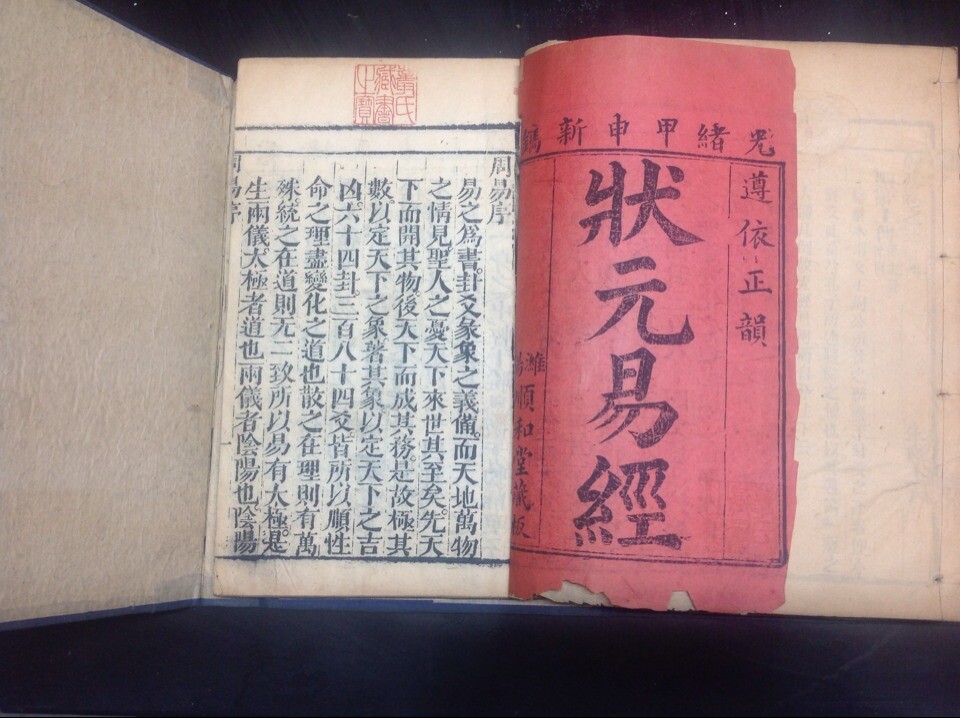 光緒甲申新鐫
遵依正韻
狀元易經
濰陽順和堂藏板
藏書
周易序
易之爲書。卦爻彖象之義備。而天地萬物
之情見。聖人之憂天下來世其至矣。先天
下而開其物後天下而成其務。是故極其
數以定天下之象著其象以定天下之吉
凶。六十四卦。三百八十四爻皆所以順性
命之理盡變化之道也散之在理則有萬
殊。統之在道則无二致所以易有太極。是
生兩儀。太極者道也兩儀者陰陽也。陰陽
周易序
一